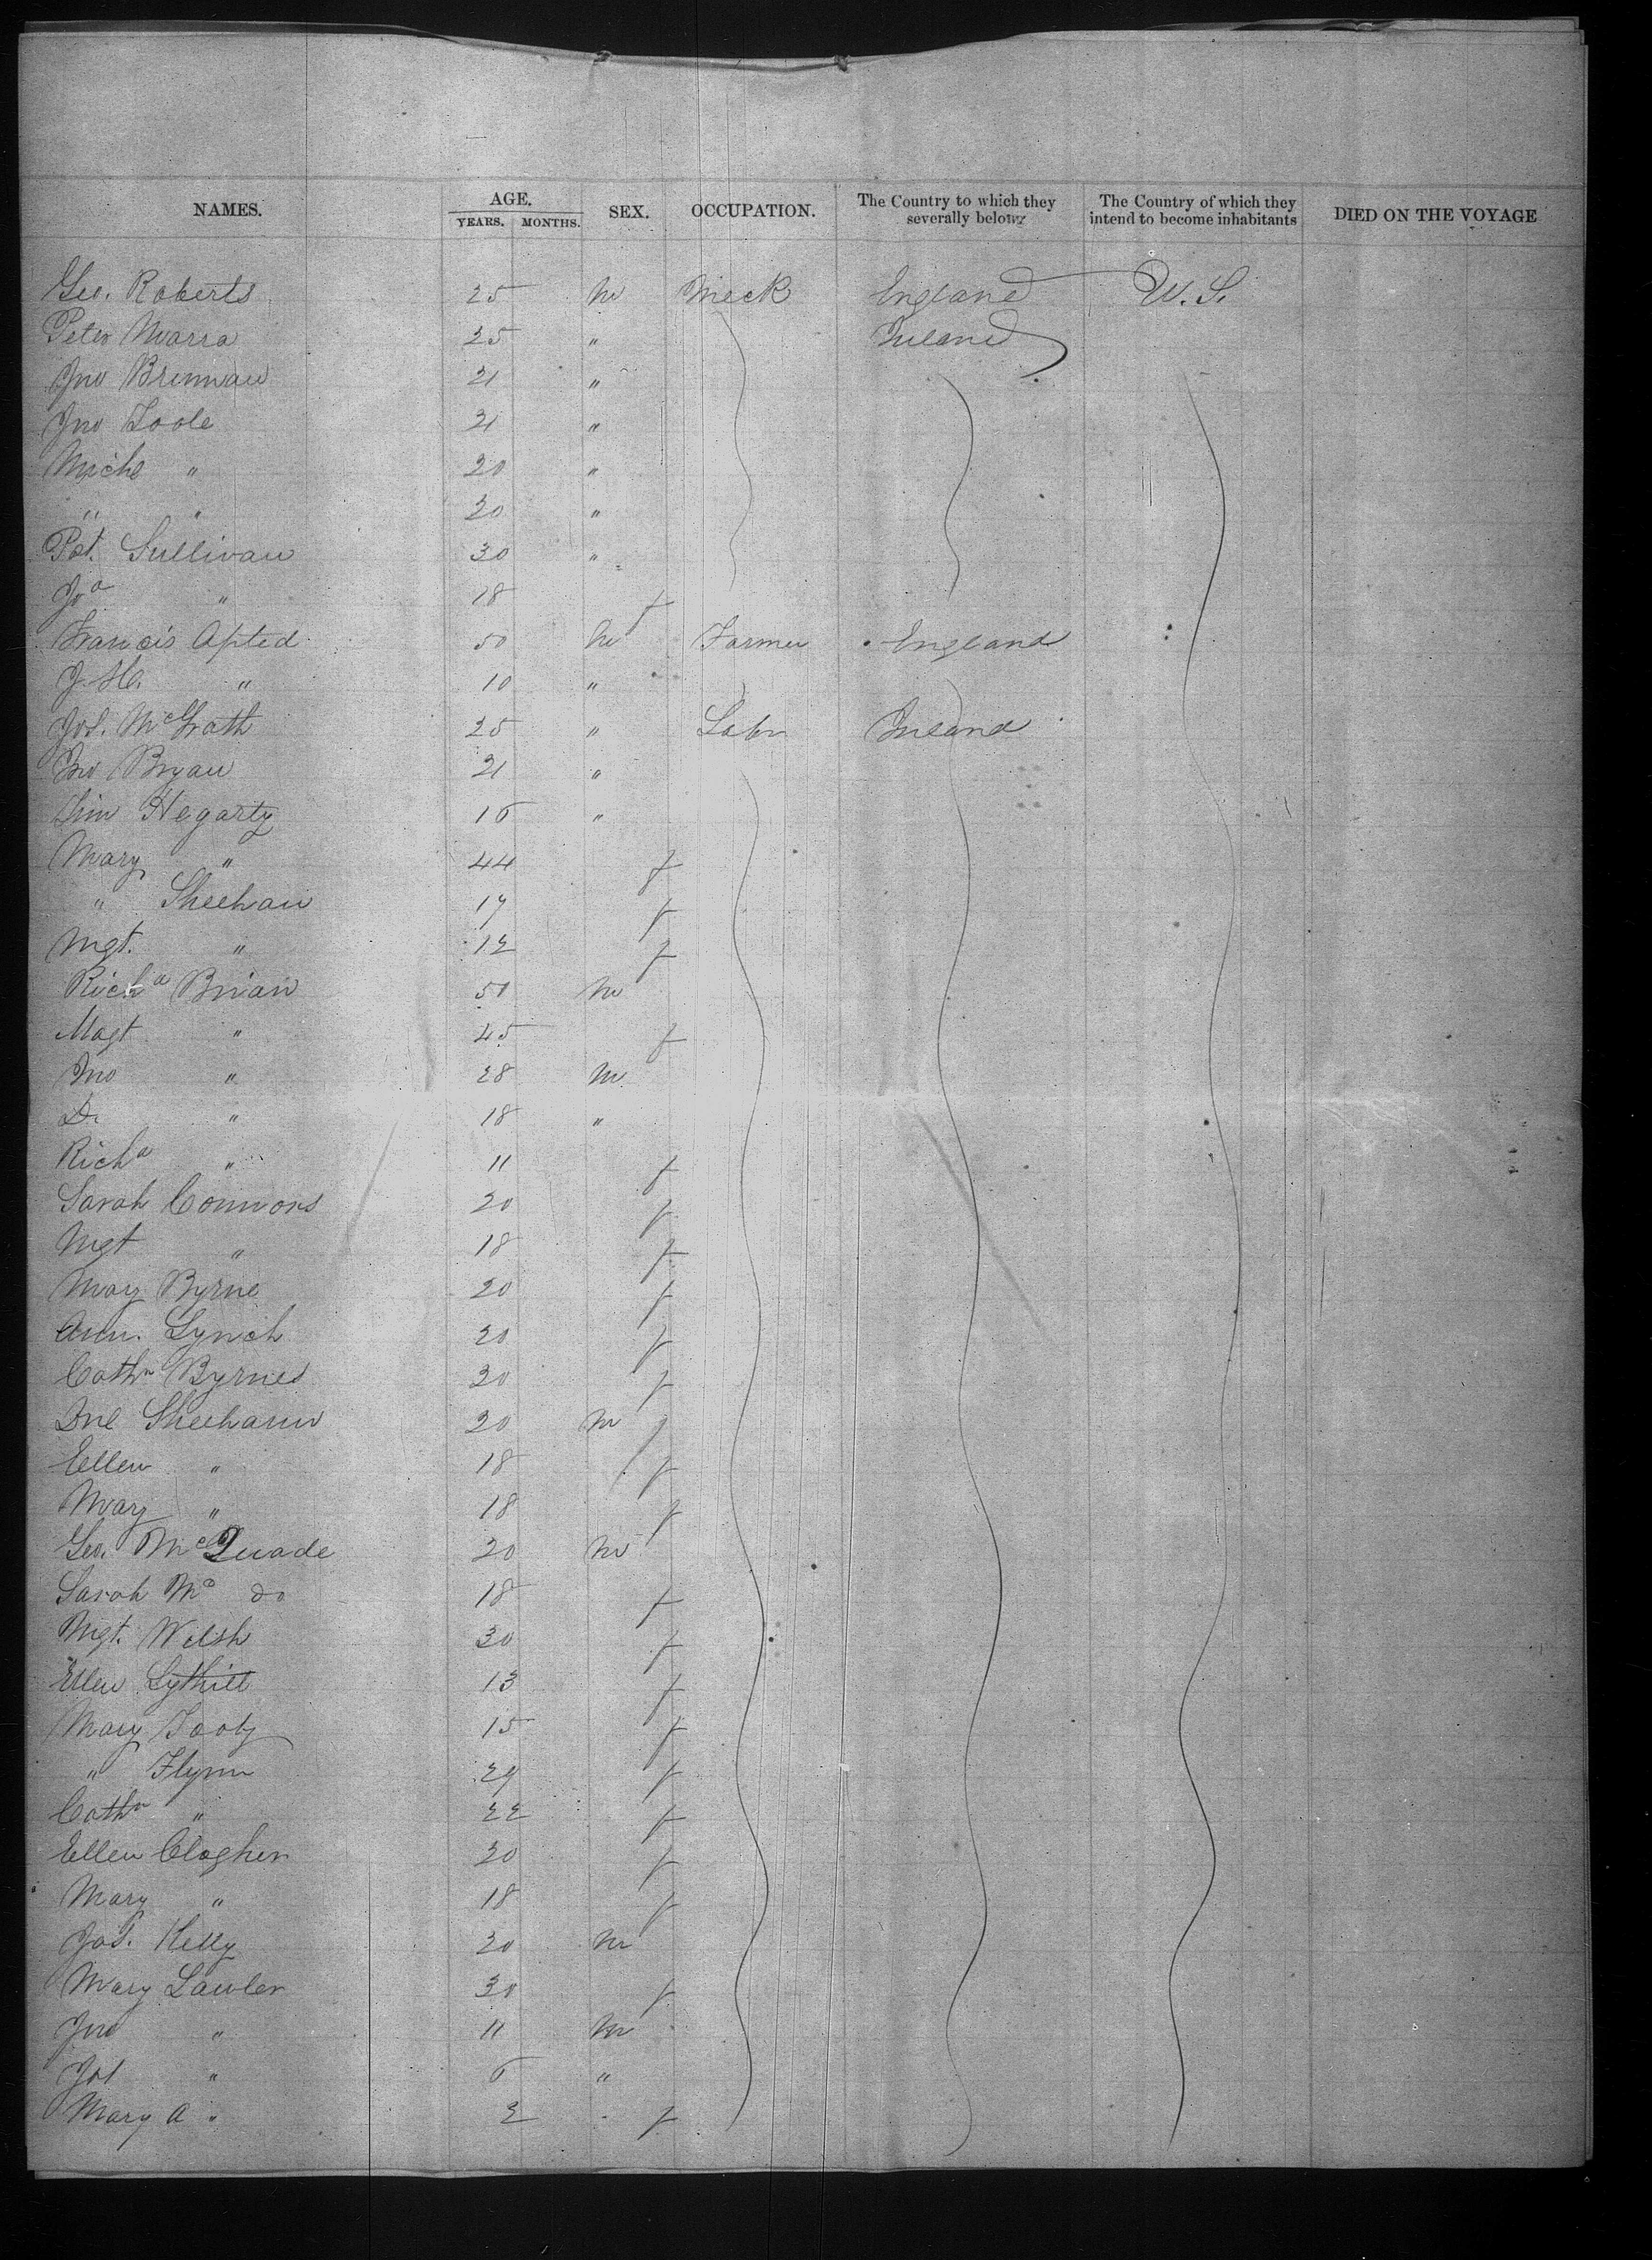 NAMES. AGE. YEARS. MONTHS. SEX. OCCUPATION. The Country to which they severally belong The Country of which they intend to become inhabitants DIED ON THE VOYAGE
Geo. Roberts 25 m Meck England U.S.
Peter Marra 25 " Ireland
Jno Brennan 21 "
Jno Toole 21 "
Michl " 20 "
" " 20 "
Pat. Sullivan 30 "
Joa " 18 f
Francis Apted 50 m Farmer England
J. H. " 10 "
Jos. McGrath 25 " Labr Ireland
Jno Bryan 21 "
Tim Hegarty 16 "
Mary " 44 f
" Sheehan 17 f
Mgt. " 12 f
Richd Brian 50 m
Magt " 45 f
Jno " 28 m
D. " 18 "
Richd " 11 f
Sarah Connors 20 f
Mgt " 18 f
Mary Byrne 20 f
Ann. Lynch 20 f
Cathn Byrnes 20 f
Dnl Sheehan 20 m
Ellen " 18 f
Mary " 18 f
Geo. McQuade 20 m
Sarah Mc do 18 f
Mgt. Welsh 30 f
Ellen Lythill 13 f
Mary Tooly 15 f
" Flynn 29 f
Cathn " 22 f
Ellen Clagher 20 f
Mary " 18 f
Jas. Kelly 20 m
Mary Lawler 30 f
Jno " 11 m
Jas " 6 "
Mary A " 2 f